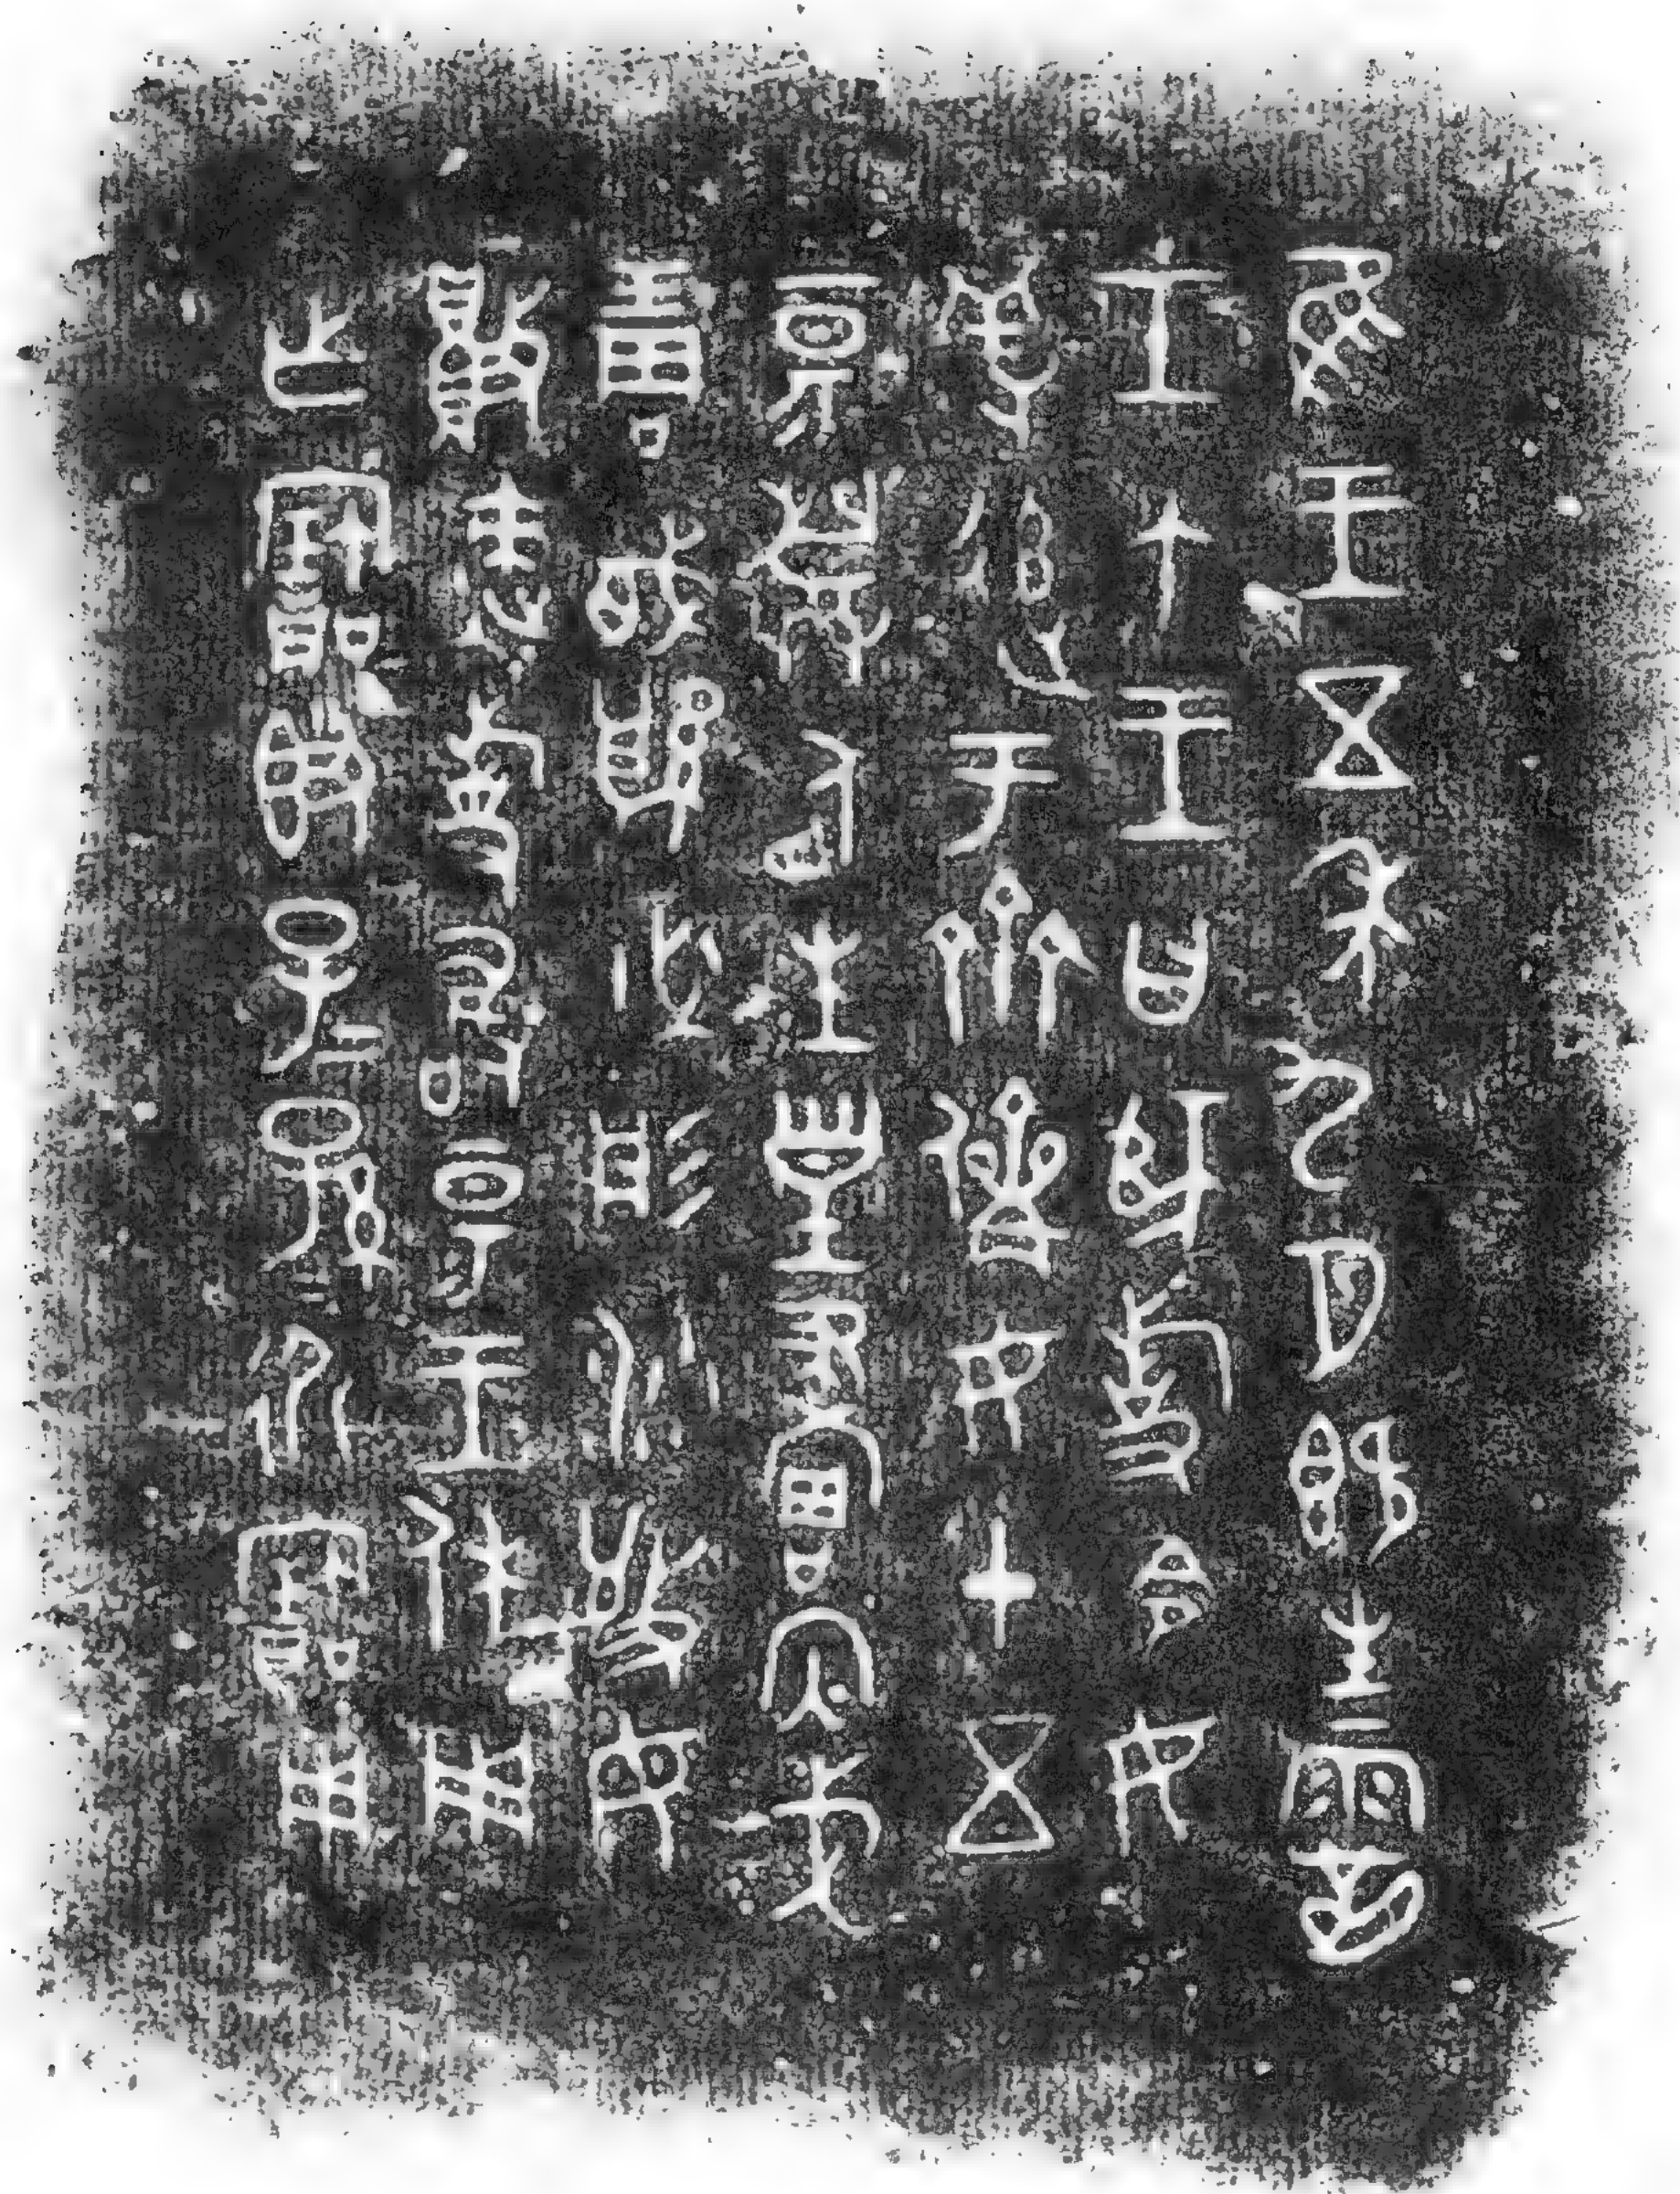 隹王五年九月既生霸
壬午王曰師旋令女
羞追于齊儕女十五昜
登盾生皇畫內戈
琱㦸必彤沙敬毋
敗速旋敢昜王休用
乍寶𣪘子子孫孫永寶用